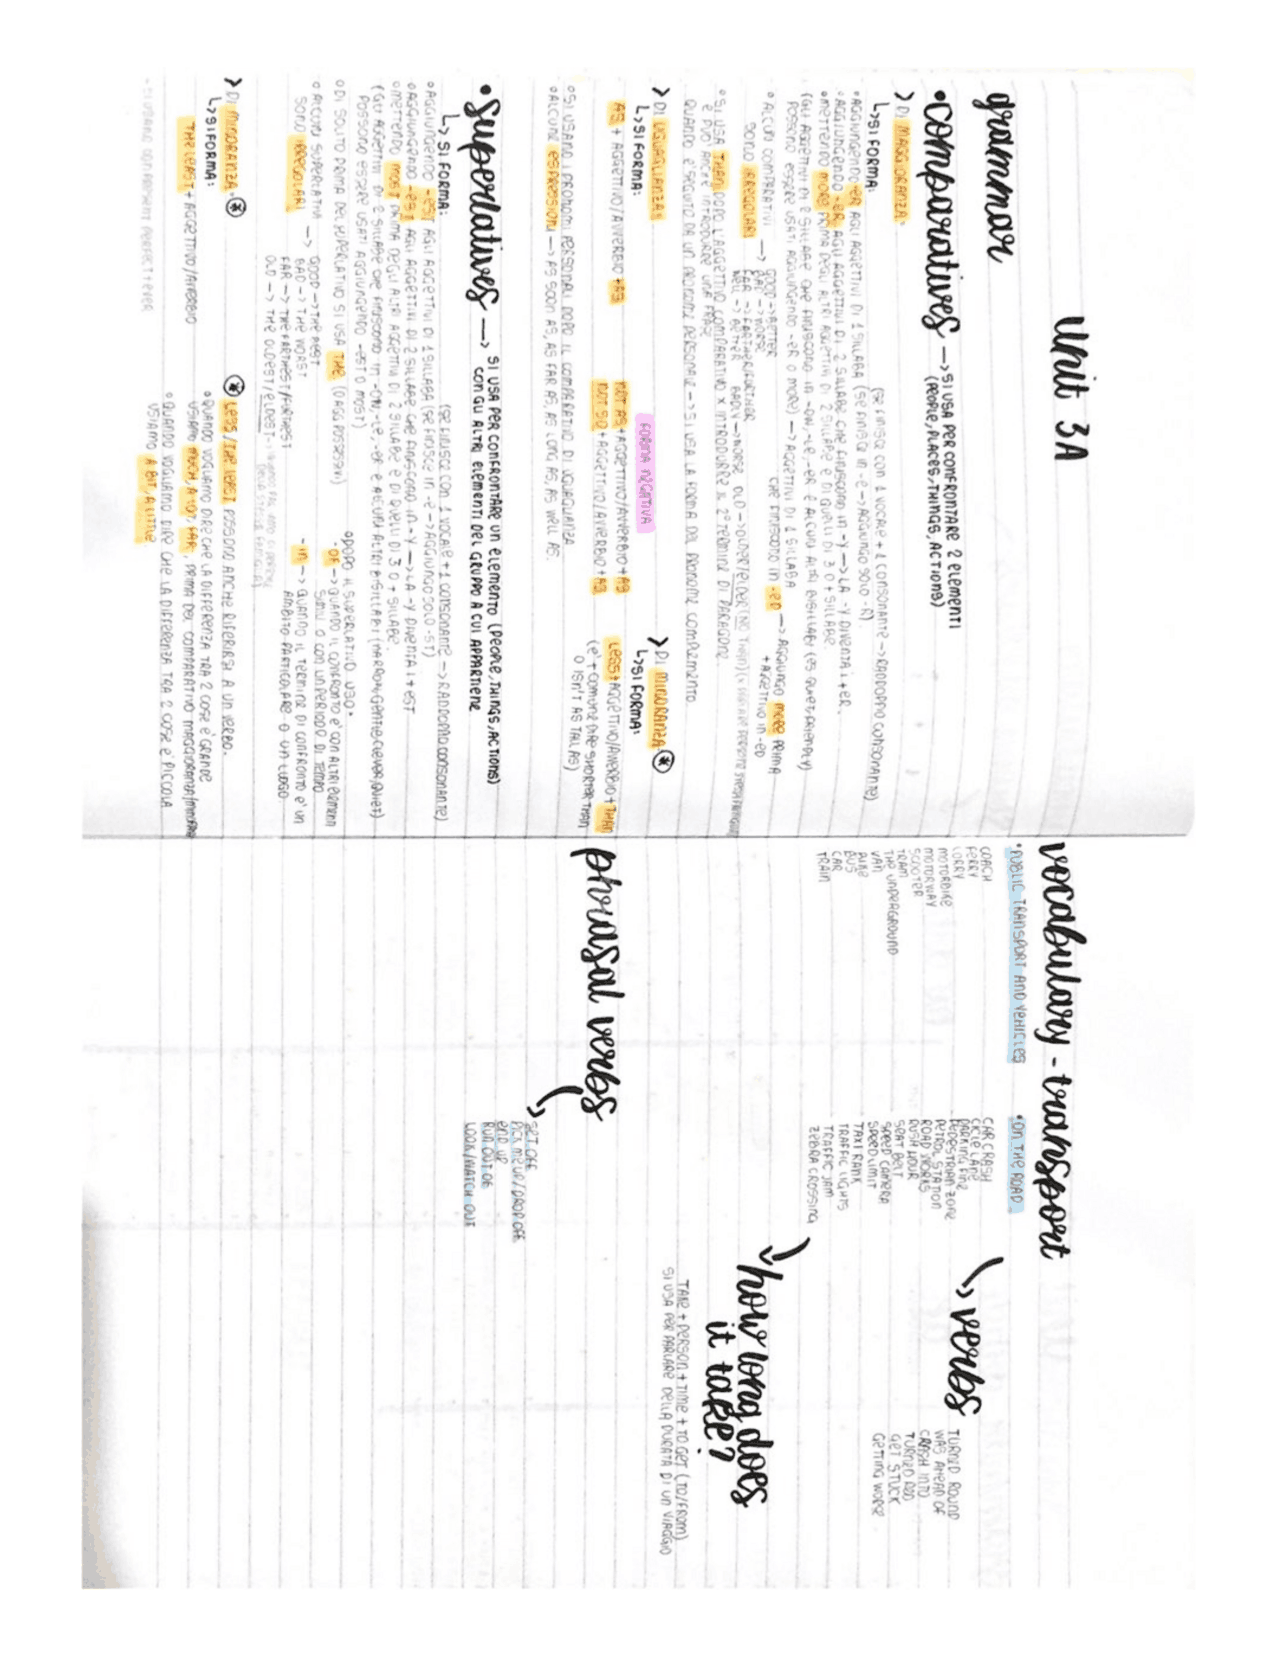 Unit 3A
grammar
•comparatives → SI USA PER CONFRONTARE 2 ELEMENTI
(PEOPLE, PLACES, THINGS, ACTIONS)
> DI MAGGIORANZA:
↳ SI FORMA:
(SE FINISCE CON 1 VOCALE + 1 CONSONANTE → RADDOPPIO CONSONANTE)
•AGGIUNGENDO -ER AGLI AGGETTIVI DI 1 SILLABA (SE FINISCE IN -E → AGGIUNGO SOLO -R)
•AGGIUNGENDO -ER AGLI AGGETTIVI DI 2 SILLABE CHE FINISCONO IN -Y → LA -Y DIVENTA i + ER.
•METTENDO MORE PRIMA DEGLI ALTRI AGGETTIVI DI 2 SILLABE E DI QUELLI DI 3 O + SILLABE
(GLI AGGETTIVI DI 2 SILLABE CHE FINISCONO IN -OW, -LE, -ER E ALCUNI ALTRI BISILLABI (ES QUIET, FRIENDLY)
POSSONO ESSERE USATI AGGIUNGENDO -ER O MORE) → AGGETTIVI DI 1 SILLABA
CHE FINISCONO IN -ED → AGGIUNGO MORE PRIMA
+ AGGETTIVO IN -ED
•ALCUNI COMPARATIVI → GOOD → BETTER
SONO IRREGOLARI BAD → WORSE
FAR → FARTHER/FURTHER
WELL → BETTER BADLY → WORSE OLD → OLDER/ELDER (NO THAN)
•SI USA THAN DOPO L'AGGETTIVO COMPARATIVO X INTRODURRE IL 2° TERMINE DI PARAGONE
E PUO' ANCHE INTRODURRE UNA FRASE
QUANDO È SEGUITO DA UN PRONOME PERSONALE → SI USA LA FORMA DEL PRONOME COMPLEMENTO
> DI UGUAGLIANZA:
↳ SI FORMA:
AS + AGGETTIVO/AVVERBIO + AS
FORMA NEGATIVA
NOT AS + AGGETTIVO/AVVERBIO + AS
NOT SO + AGGETTIVO/AVVERBIO + AS
> DI MINORANZA ✱
↳ SI FORMA:
LESS + AGGETTIVO/AVVERBIO + THAN
(E' + COMUNE DIRE SHORTER THAN
O ISN'T AS TALL AS)
•SI USANO I PRONOMI PERSONALI DOPO IL COMPARATIVO DI UGUAGLIANZA
•ALCUNE ESPRESSIONI → AS SOON AS, AS FAR AS, AS LONG AS, AS WELL AS.
•superlatives → SI USA PER CONFRONTARE UN ELEMENTO (PEOPLE, THINGS, ACTIONS)
CON GLI ALTRI ELEMENTI DEL GRUPPO A CUI APPARTIENE
↳ SI FORMA:
(SE FINISCE CON 1 VOCALE + 1 CONSONANTE → RADDOPPIO CONSONANTE)
•AGGIUNGENDO -EST AGLI AGGETTIVI DI 1 SILLABA (SE FINISCE IN -E → AGGIUNGO SOLO -ST)
•AGGIUNGENDO -EST AGLI AGGETTIVI DI 2 SILLABE CHE FINISCONO IN -Y → LA -Y DIVENTA i + EST
•METTENDO MOST PRIMA DEGLI ALTRI AGGETTIVI DI 2 SILLABE E DI QUELLI DI 3 O + SILLABE.
(GLI AGGETTIVI DI 2 SILLABE CHE FINISCONO IN -OW, -LE, -ER E ALCUNI ALTRI BISILLABI (NARROW, GENTLE, CLEVER, QUIET)
POSSONO ESSERE USATI AGGIUNGENDO -EST O MOST)
•DI SOLITO PRIMA DEL SUPERLATIVO SI USA THE (O AGG POSSESSIVI)
•ALCUNI SUPERLATIVI → GOOD → THE BEST
SONO IRREGOLARI BAD → THE WORST
FAR → THE FARTHEST/FURTHEST
OLD → THE OLDEST/ELDEST
•DOPO IL SUPERLATIVO USO:
-OF → QUANDO IL CONFRONTO E' CON ALTRI ELEMENTI
SIMILI O CON UN PERIODO DI TEMPO
-IN → QUANDO IL TERMINE DI CONFRONTO E' UN
AMBITO PARTICOLARE O UN LUOGO
> DI MINORANZA: ✱
↳ SI FORMA:
THE LEAST + AGGETTIVO/AVVERBIO
•SI USANO CON PRESENT PERFECT + EVER
✱ LESS/THE LEAST POSSONO ANCHE RIFERIRSI A UN VERBO.
•QUANDO VOGLIAMO DIRE CHE LA DIFFERENZA TRA 2 COSE E' GRANDE
USIAMO MUCH, A LOT, FAR, PRIMA DEL COMPARATIVO MAGGIORANZA/MINORANZA
•QUANDO VOGLIAMO DIRE CHE LA DIFFERENZA TRA 2 COSE E' PICCOLA
USIAMO A BIT, A LITTLE.
vocabulary - transport
•PUBLIC TRANSPORT AND VEHICLES
COACH
FERRY
LORRY
MOTORBIKE
MOTORWAY
SCOOTER
TRAM
THE UNDERGROUND
VAN
BIKE
BUS
CAR
TRAIN
•ON THE ROAD
CAR CRASH
CYCLE LANE
PARKING FINE
PEDESTRIAN ZONE
PETROL STATION
ROAD WORKS
RUSH HOUR
SEAT BELT
SPEED CAMERA
SPEED LIMIT
TAXI RANK
TRAFFIC LIGHTS
TRAFFIC JAM
ZEBRA CROSSING
→ verbs
TURNED ROUND
WAS AHEAD OF
CRASH INTO
TURNED RED
GET STUCK
GETTING WORSE
how long does
it take?
TAKE + PERSON + TIME + TO GET (TO/FROM)
SI USA PER PARLARE DELLA DURATA DI UN VIAGGIO
phrasal verbs
SET OFF
PICK ME UP/DROP OFF
END UP
RUN OUT OF
LOOK/WATCH OUT